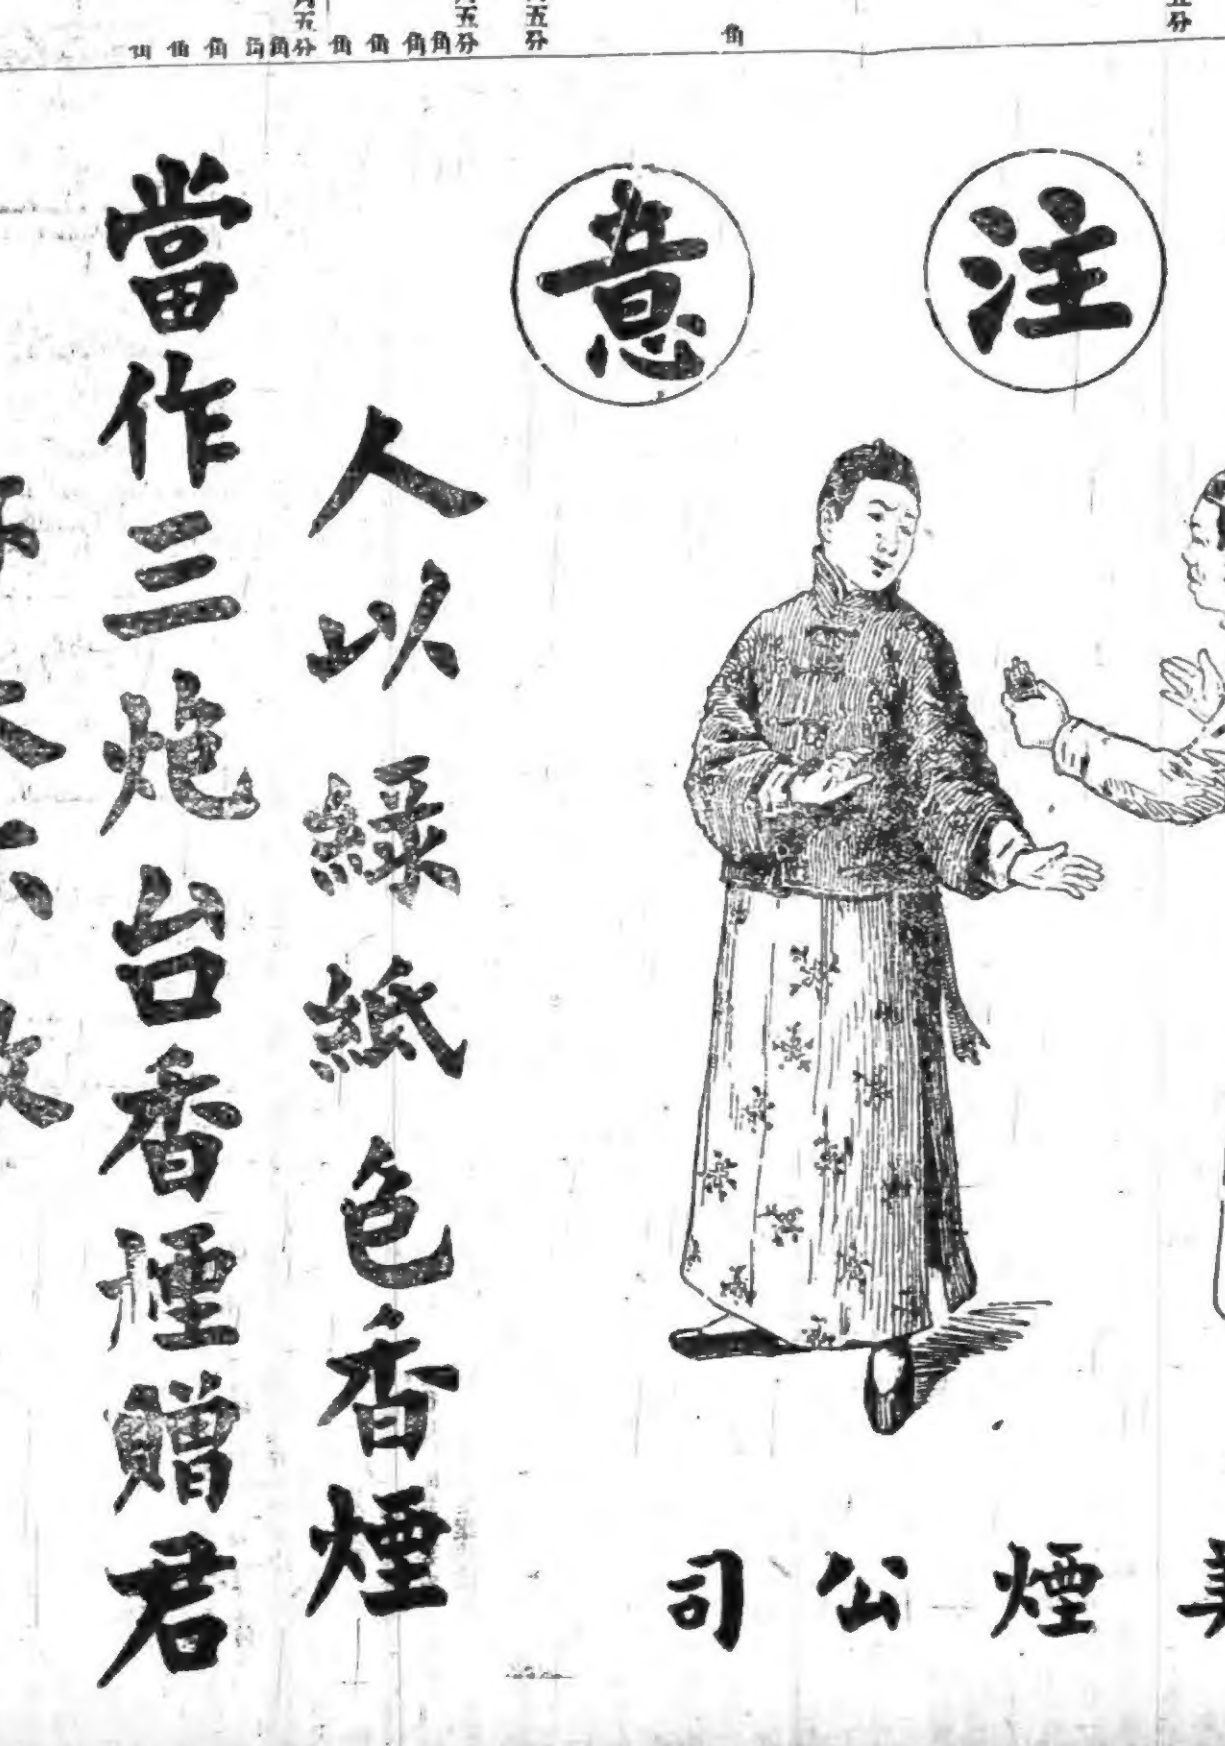 注意
人以綠紙色香煙
當作三炮台香煙贈君
煙公司